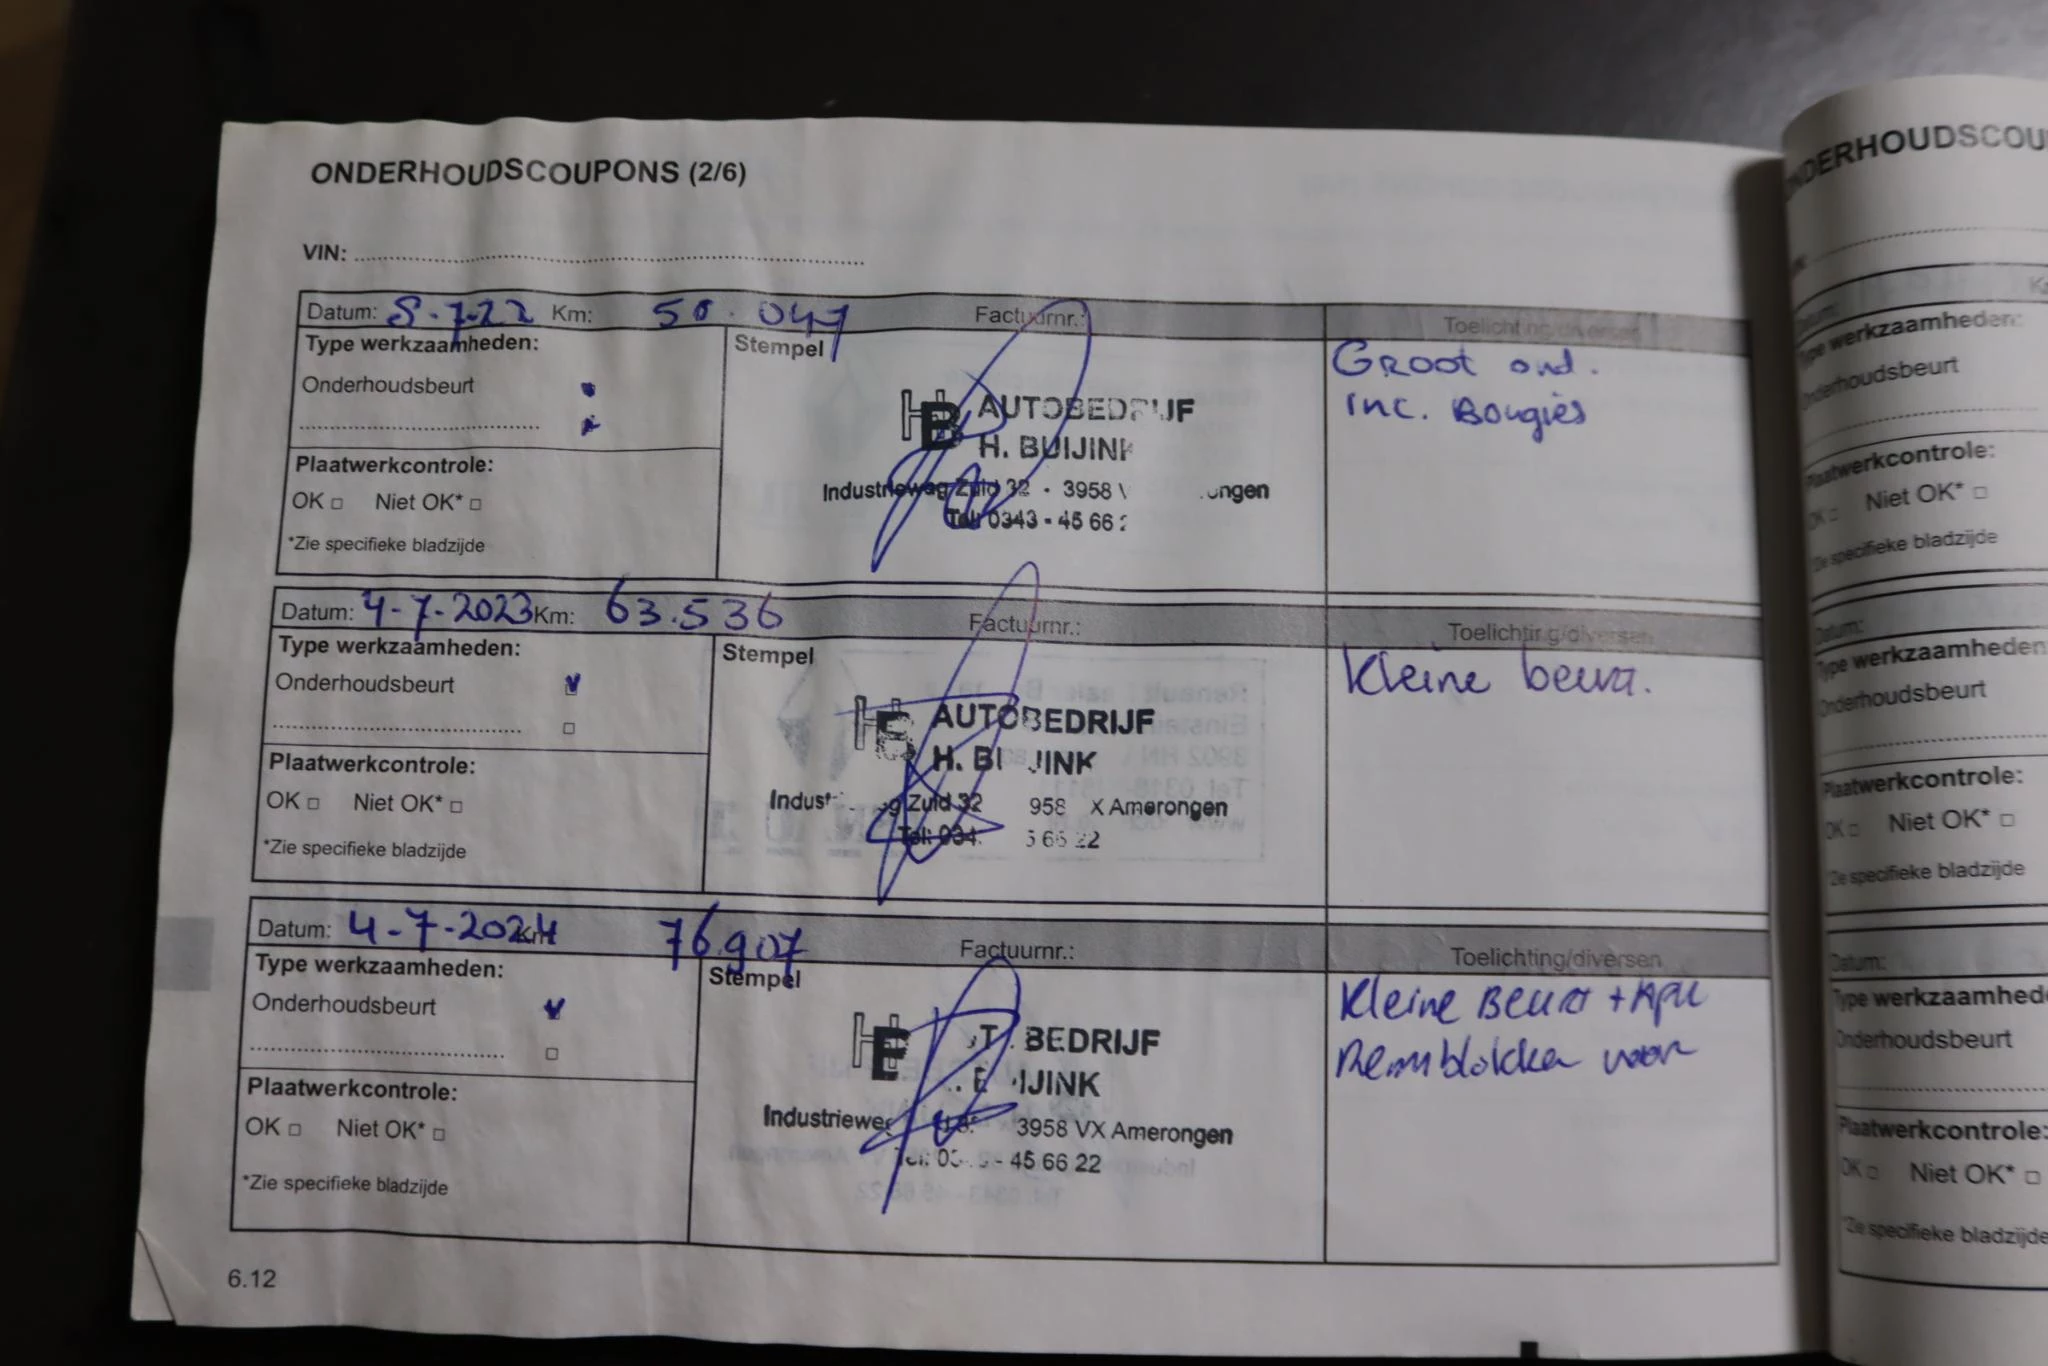 ONDERHOUDSCOUPONS (2/6)
VIN:
Datum: 8-7-22 Km: 50.047 Factuurnr.: Toelichting/diversen
Type werkzaamheden: Stempel
Onderhoudsbeurt
Groot ond.
inc. Bougies
AUTOBEDRIJF
H. BUIJINK
Industrieweg Zuid 32 - 3958 V ongen
Tel: 0343 - 45 66 2
Plaatwerkcontrole:
OK □ Niet OK* □
*Zie specifieke bladzijde
Datum: 4-7-2023 Km: 63.536 Factuurnr.: Toelichting/diversen
Type werkzaamheden: Stempel
Onderhoudsbeurt
Kleine beurt.
HB AUTOBEDRIJF
H. BIJINK
Indust g Zuid 32 958 X Amerongen
Tel: 034 5 66 22
Plaatwerkcontrole:
OK □ Niet OK* □
*Zie specifieke bladzijde
Datum: 4-7-2024 Km 76.907 Factuurnr.: Toelichting/diversen
Type werkzaamheden: Stempel
Onderhoudsbeurt
Kleine Beurt + Apk
Remblokken voor
T BEDRIJF
IJINK
Industrieweg 3958 VX Amerongen
Tel: 03 - 45 66 22
Plaatwerkcontrole:
OK □ Niet OK* □
*Zie specifieke bladzijde
6.12
NDERHOUDSCOU
Datum:
Type werkzaamheden:
Onderhoudsbeurt
Plaatwerkcontrole:
OK □ Niet OK* □
*Zie specifieke bladzijde
Datum:
Type werkzaamheden
Onderhoudsbeurt
Plaatwerkcontrole:
OK □ Niet OK* □
*Zie specifieke bladzijde
Datum:
Type werkzaamhed
Onderhoudsbeurt
Plaatwerkcontrole:
OK □ Niet OK* □
*Zie specifieke bladzijde